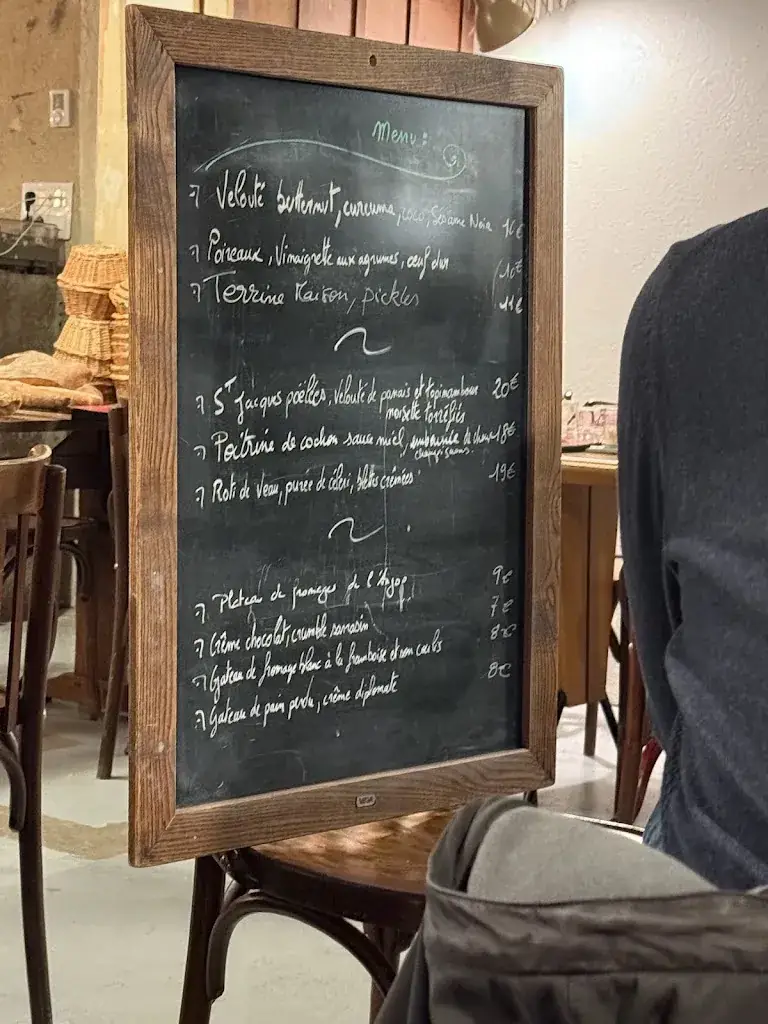 Menu:
Velouté butternut, curcuma, coco, Sésame Noir 10€
Poireaux, Vinaigrette aux agrumes, œuf dur 10€
Terrine Maison, pickles 11€
St Jacques poêlées, Velouté de panais et topinambour 20€
noisette torréfiés
Poitrine de cochon sauce miel, de 18€
champignons.
Roti de Veau, purée de céleri, blettes crémées 19€
Plateau de fromages de l'Angop 9€
Crème chocolat, crumble sarrasin 7€
Gateau de fromage blanc à la framboise et son coulis 8€
Gateau de pain perdu, crème diplomate 8€